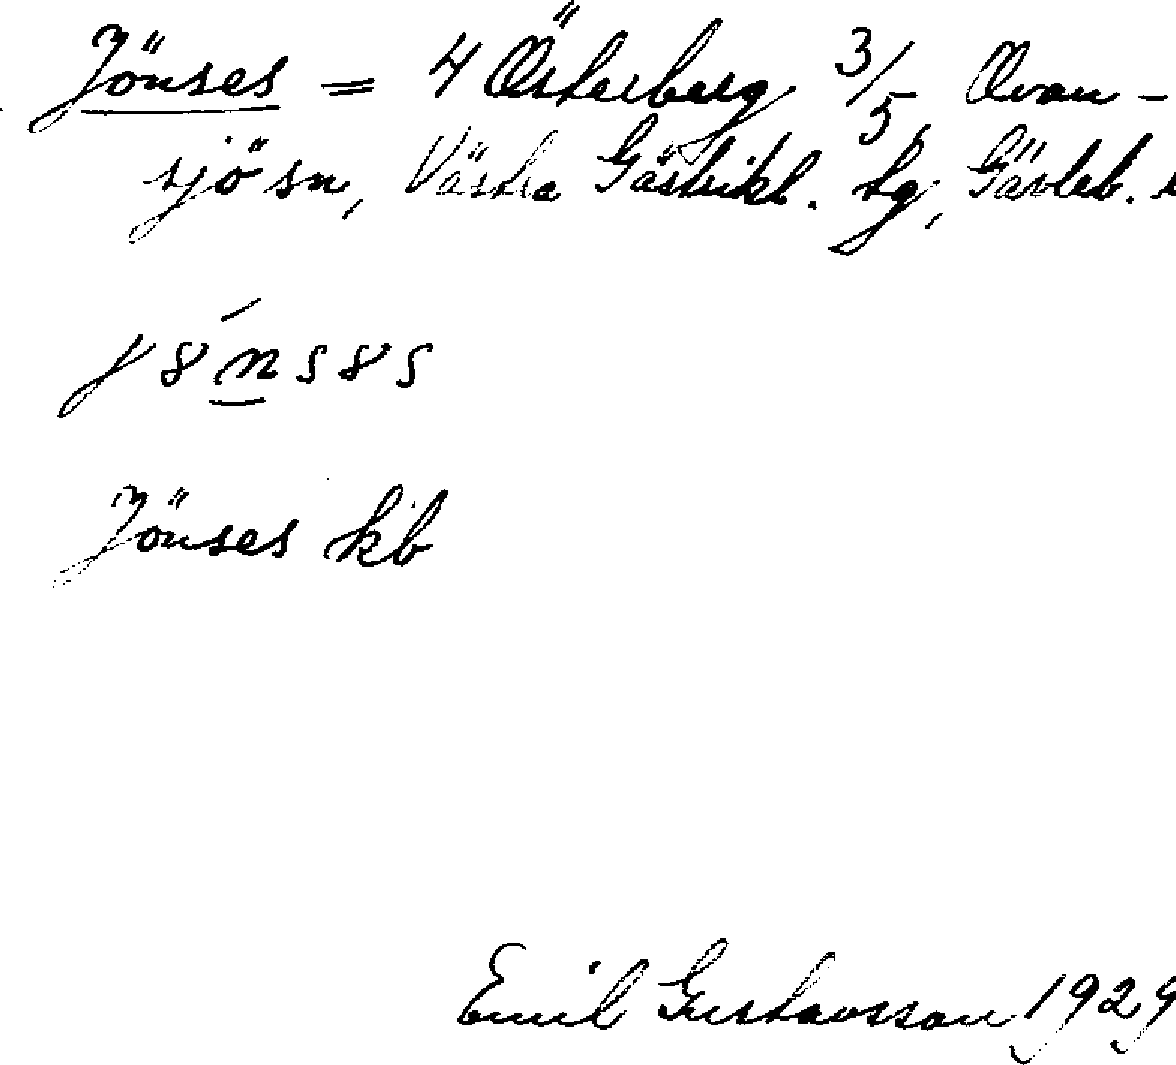 Jönses = 4 Österberg 3/5 Ovan-
sjö sn, Västra Gästrikl. tg, Gävleb.
Jönses kb
Emil Gustavsson 1929